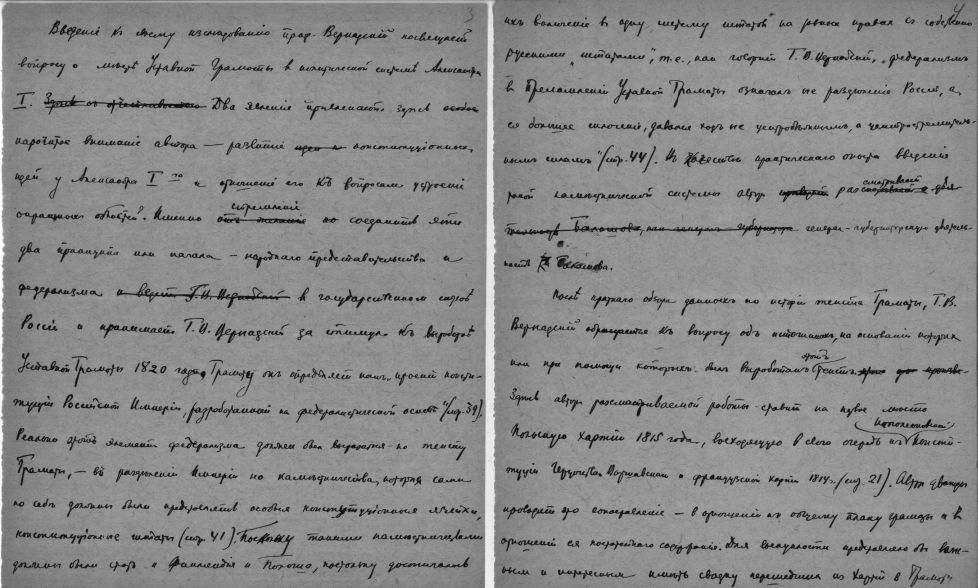 3
Введеніе къ своему изслѣдованію проф. Вернадскій посвящаетъ
вопросу о мѣстѣ Уставной Грамоты в политической системѣ Александра
I. Два явленія привлекаютъ здѣсь особое
нарочитое вниманіе автора — развитіе конституціонныхъ
идей у Александра I го и отношеніе его къ вопросамъ устроенія
окраинныхъ областей. Именно стремленіе соединить эти
два принципа или начала — народнаго представительства и
федерализма и ведетъ Г.В. Вернадскій в государственномъ строѣ
Россіи и принимаетъ Г.В. Вернадскій за стимулъ къ выработкѣ
Уставной Грамоты 1820 года. Грамоту онъ опредѣляетъ какъ „проектъ консти-
туціи Россійской Имперіи, разработанный на федералистической основѣ" (стр. 39).
Реально этотъ элементъ федерализма долженъ былъ выразиться по тексту
Грамоты, — въ раздѣленіи Имперіи на намѣстничества, которыя сами
по себѣ должны были представлять особыя конституціонныя ячейки,
конституціонные штаты (стр. 41). Поскольку такими намѣстничествами
должны были стать и Финляндія и Польша, постольку достигалось
4
ихъ включеніе в одну систему штатовъ на равныхъ правахъ съ собственно
русскими „штатами", т.е., какъ говоритъ Г.В. Вернадскій, „федерализмъ
въ преломленіи Уставной Грамоты означалъ не раздѣленіе Россіи, а
ея большее сплоченіе, давался ходъ не центробѣжнымъ, а центростремитель-
нымъ силамъ" (стр. 44). Въ качествѣ практическаго опыта введенія
такой намѣстнической системы авторъ разсматриваетъ
генералъ-губернаторскую дѣятель-
ность Балашова.
Послѣ краткаго обзора данныхъ по исторіи текста Грамоты, Г.В.
Вернадскій обращается къ вопросу объ источникахъ, на основаніи которыхъ
или при помощи которыхъ былъ выработанъ этотъ текстъ.
Здѣсь авторъ разсматриваемой работы ставитъ на первое мѣсто
Польскую хартію 1815 года, восходящую в свою очередь къ Наполеоновской Консти-
туціи Герцогства Варшавскаго и французской хартіи 1814 г. (стр. 21). Авторъ дважды
проводитъ это сопоставленіе — въ отношеніи къ общему плану грамоты и въ
отношеніи ея постатейнаго содержанія. Для выпуклости представлялось бы важ-
нымъ и интереснымъ имѣть сводку перешедшихъ изъ Хартіи въ Грамоту